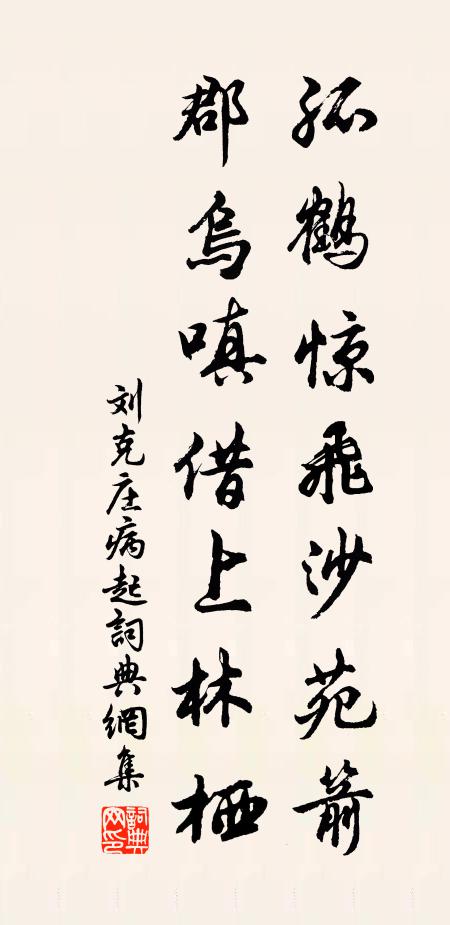 孤鹤惊飞沙苑箭
郡乌嗔借上林栖
刘克庄病起詞典網集
詞典网印